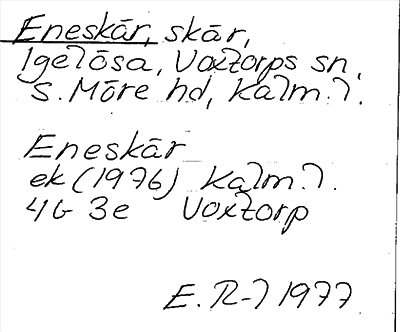 Eneskär, skär,
Igelösa, Voxtorps sn,
S. Möre hd, Kalm. l.
Eneskär
ek (1976) Kalm. l.
4G 3e Voxtorp
E. R-l 1977